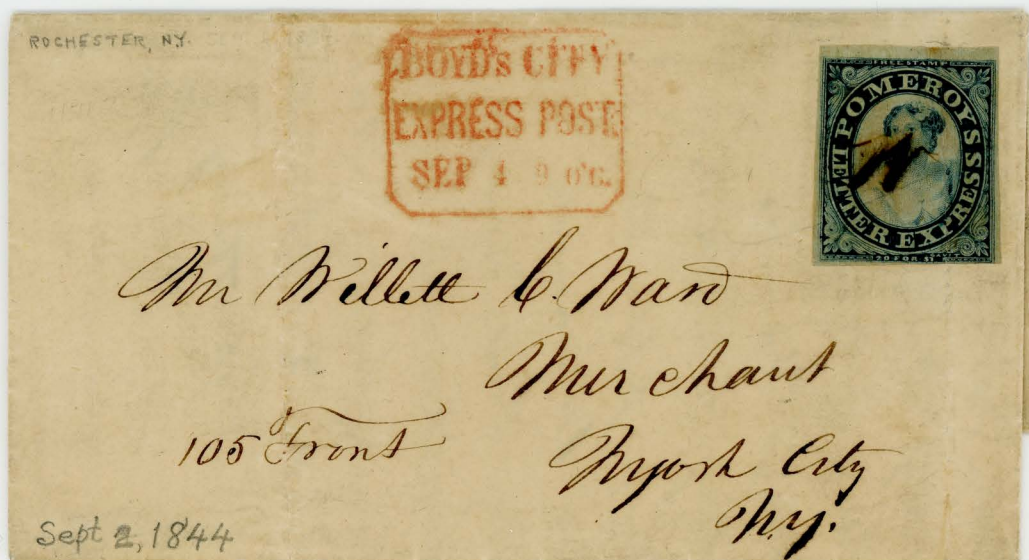 ROCHESTER, N.Y.
BOYD's CITY
EXPRESS POST.
SEP 4 9 o'c.
FREE STAMP
POMEROY'S
LETTER EXPRESS
20 FOR $1
Mr Willett C. Ward
Merchant
105 Front
NYork City
N.Y.
Sept 2, 1844